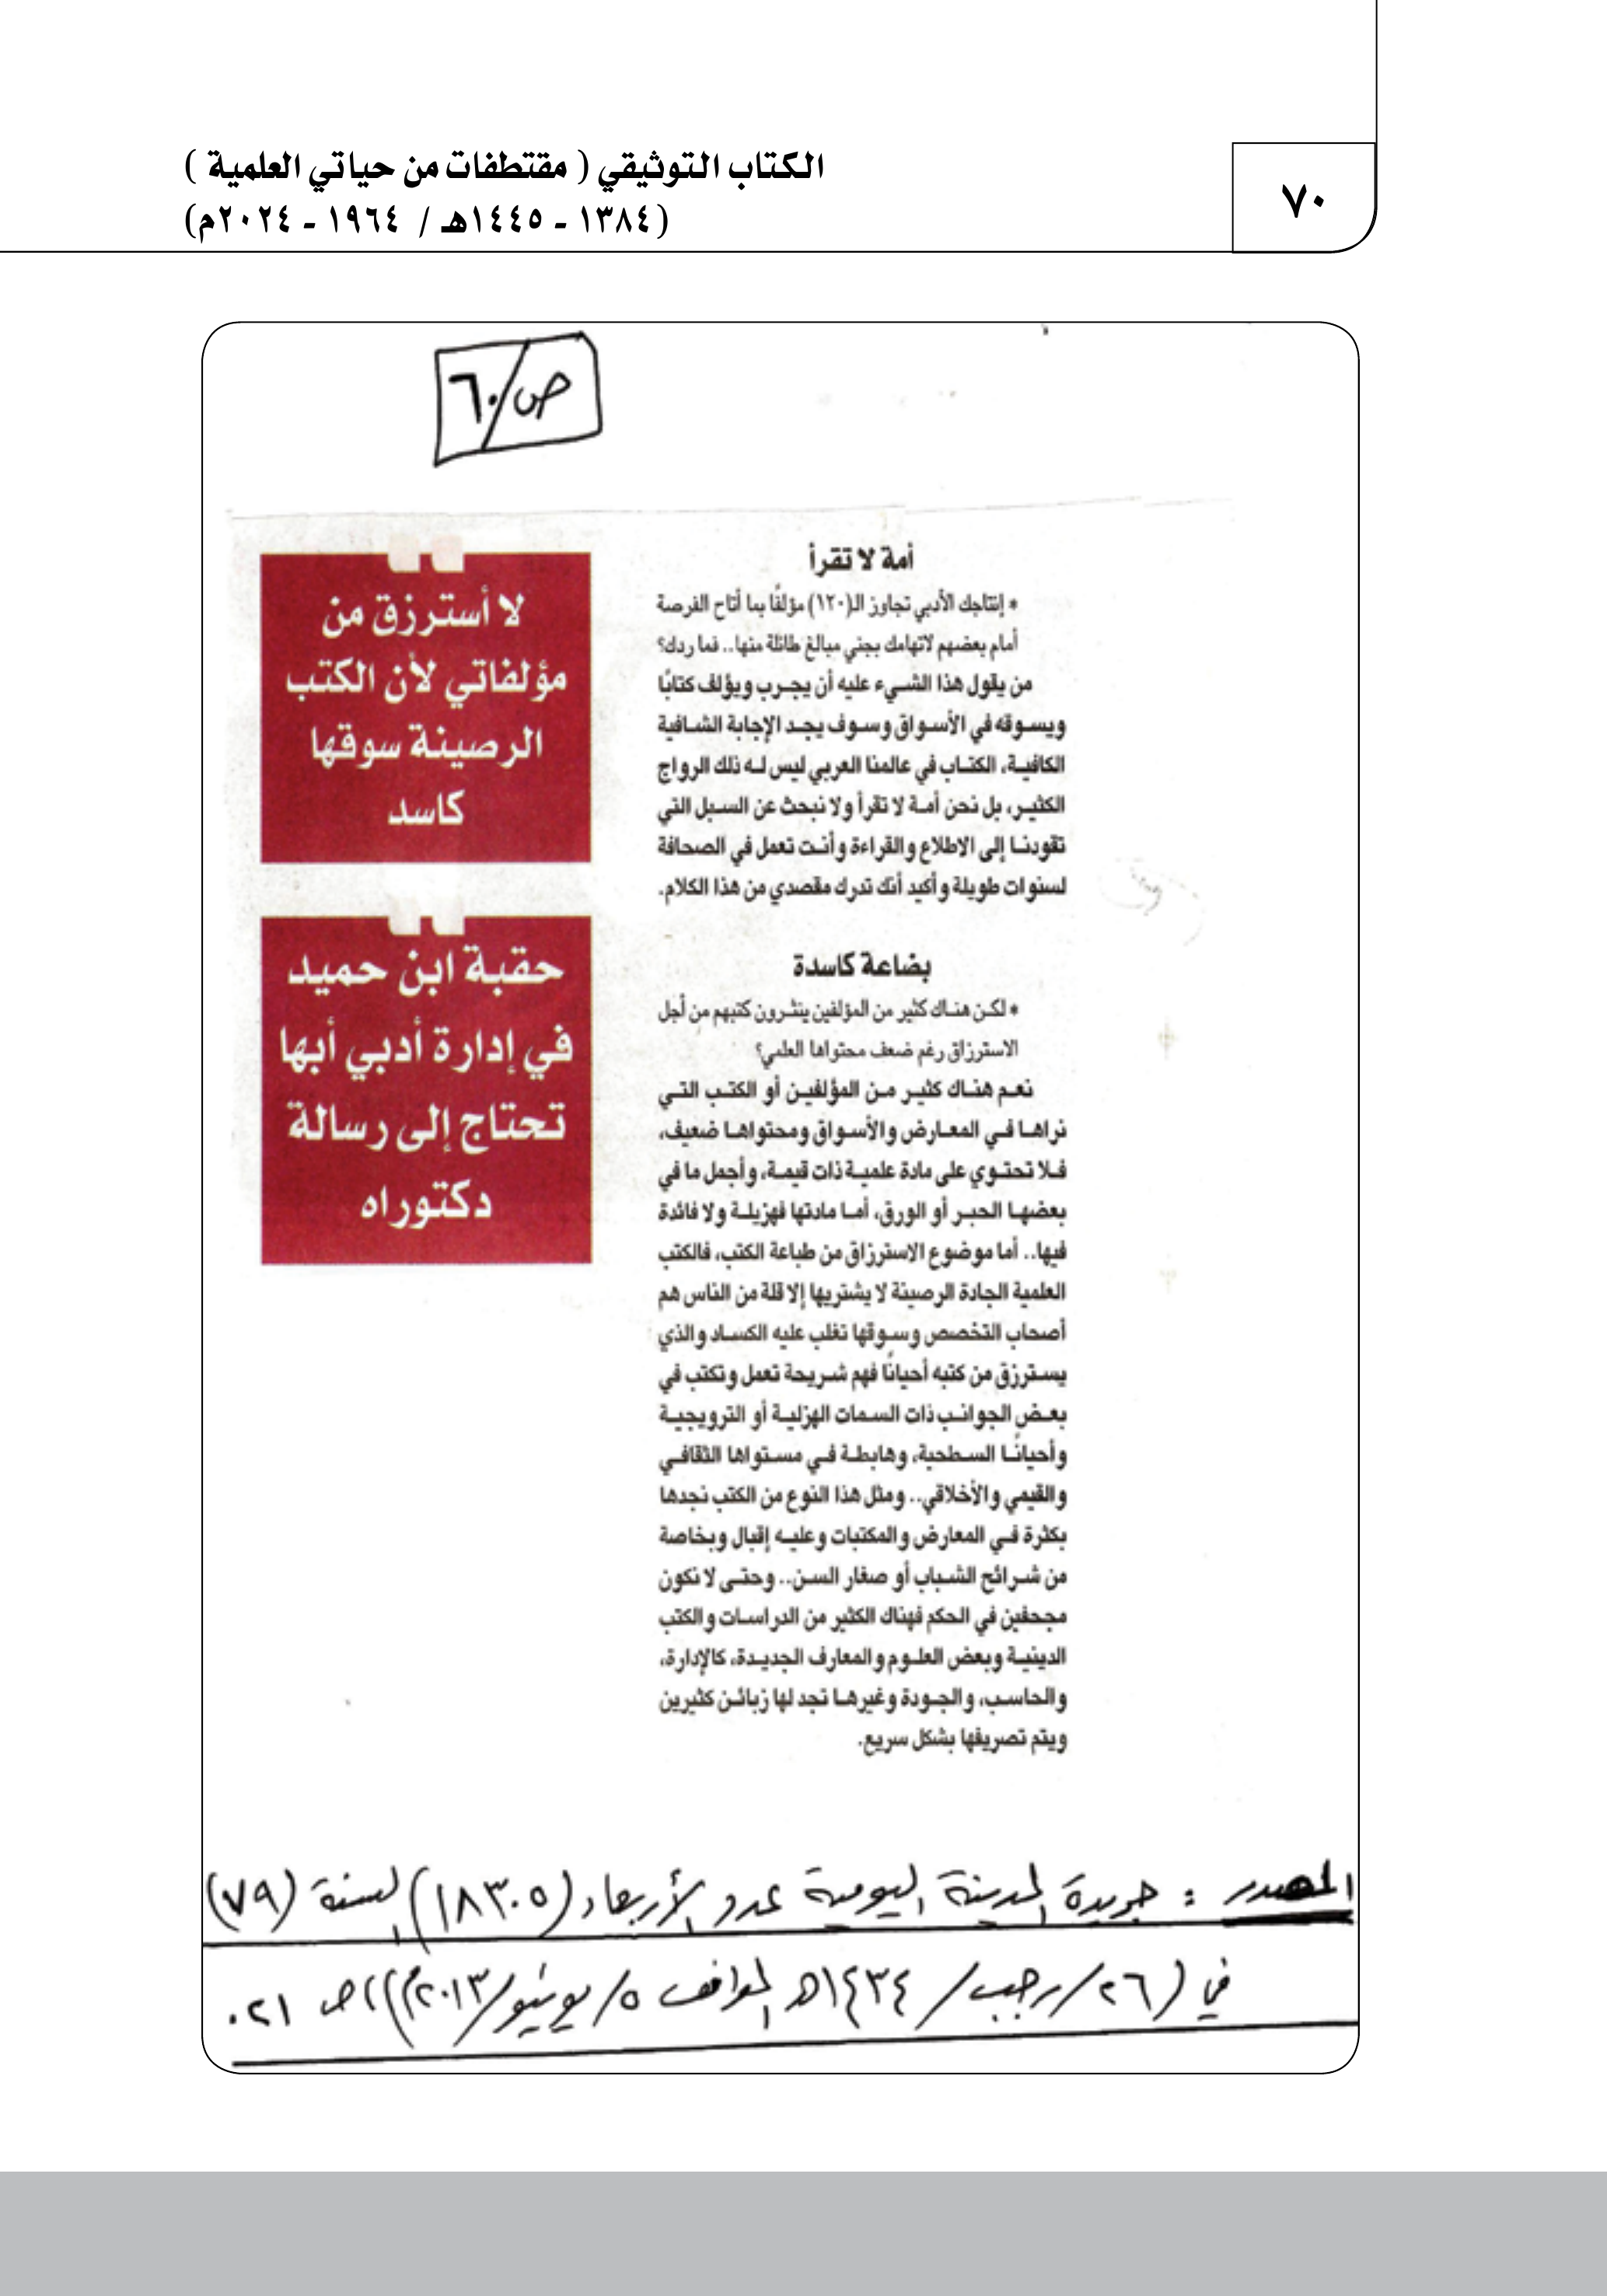 ٧٠
الكتاب التوثيقي ( مقتطفات من حياتي العلمية )
(١٣٨٤ - ١٤٤٥هـ / ١٩٦٤ - ٢٠٢٤م)
ص/٦٠
أمة لا تقرأ
* إنتاجك الأدبي تجاوز الـ(١٢٠) مؤلفًا بما أتاح الفرصة
أمام بعضهم لاتهامك بجني مبالغ طائلة منها.. فما ردك؟
من يقول هذا الشيء عليه أن يجرب ويؤلف كتابًا
ويسوقه في الأسواق وسوف يجد الإجابة الشافية
الكافية، الكتاب في عالمنا العربي ليس له ذلك الرواج
الكثير، بل نحن أمة لا تقرأ ولا نبحث عن السبل التي
تقودنا إلى الاطلاع والقراءة وأنت تعمل في الصحافة
لسنوات طويلة وأكيد أنك تدرك مقصدي من هذا الكلام.
بضاعة كاسدة
* لكن هناك كثير من المؤلفين ينثرون كتبهم من أجل
الاسترزاق رغم ضعف محتواها العلمي؟
نعم هناك كثير من المؤلفين أو الكتب التي
نراها في المعارض والأسواق ومحتواها ضعيف،
فلا تحتوي على مادة علمية ذات قيمة، وأجمل ما في
بعضها الحبر أو الورق، أما مادتها فهزيلة ولا فائدة
فيها.. أما موضوع الاسترزاق من طباعة الكتب، فالكتب
العلمية الجادة الرصينة لا يشتريها إلا قلة من الناس هم
أصحاب التخصص وسوقها تغلب عليه الكساد والذي
يسترزق من كتبه أحيانًا فهم شريحة تعمل وتكتب في
بعض الجوانب ذات السمات الهزلية أو الترويجية
وأحيانًا السطحية، وهابطة في مستواها الثقافي
والقيمي والأخلاقي.. ومثل هذا النوع من الكتب نجدها
بكثرة في المعارض والمكتبات وعليه إقبال وبخاصة
من شرائح الشباب أو صغار السن.. وحتى لا نكون
مجحفين في الحكم فهناك الكثير من الدراسات والكتب
الدينية وبعض العلوم والمعارف الجديدة، كالإدارة،
والحاسب، والجودة وغيرها تجد لها زبائن كثيرين
ويتم تصريفها بشكل سريع.
لا أسترزق من
مؤلفاتي لأن الكتب
الرصينة سوقها
كاسد
حقبة ابن حميد
في إدارة أدبي أبها
تحتاج إلى رسالة
دكتوراه
المصدر : جريدة المدينة اليومية عدد الأربعاء (١٨٣٠٥) السنة (٧٩)
في (٢٦/رجب/١٤٣٤هـ الموافق ٥/يونيو/٢٠١٣م)) ص ٢١.